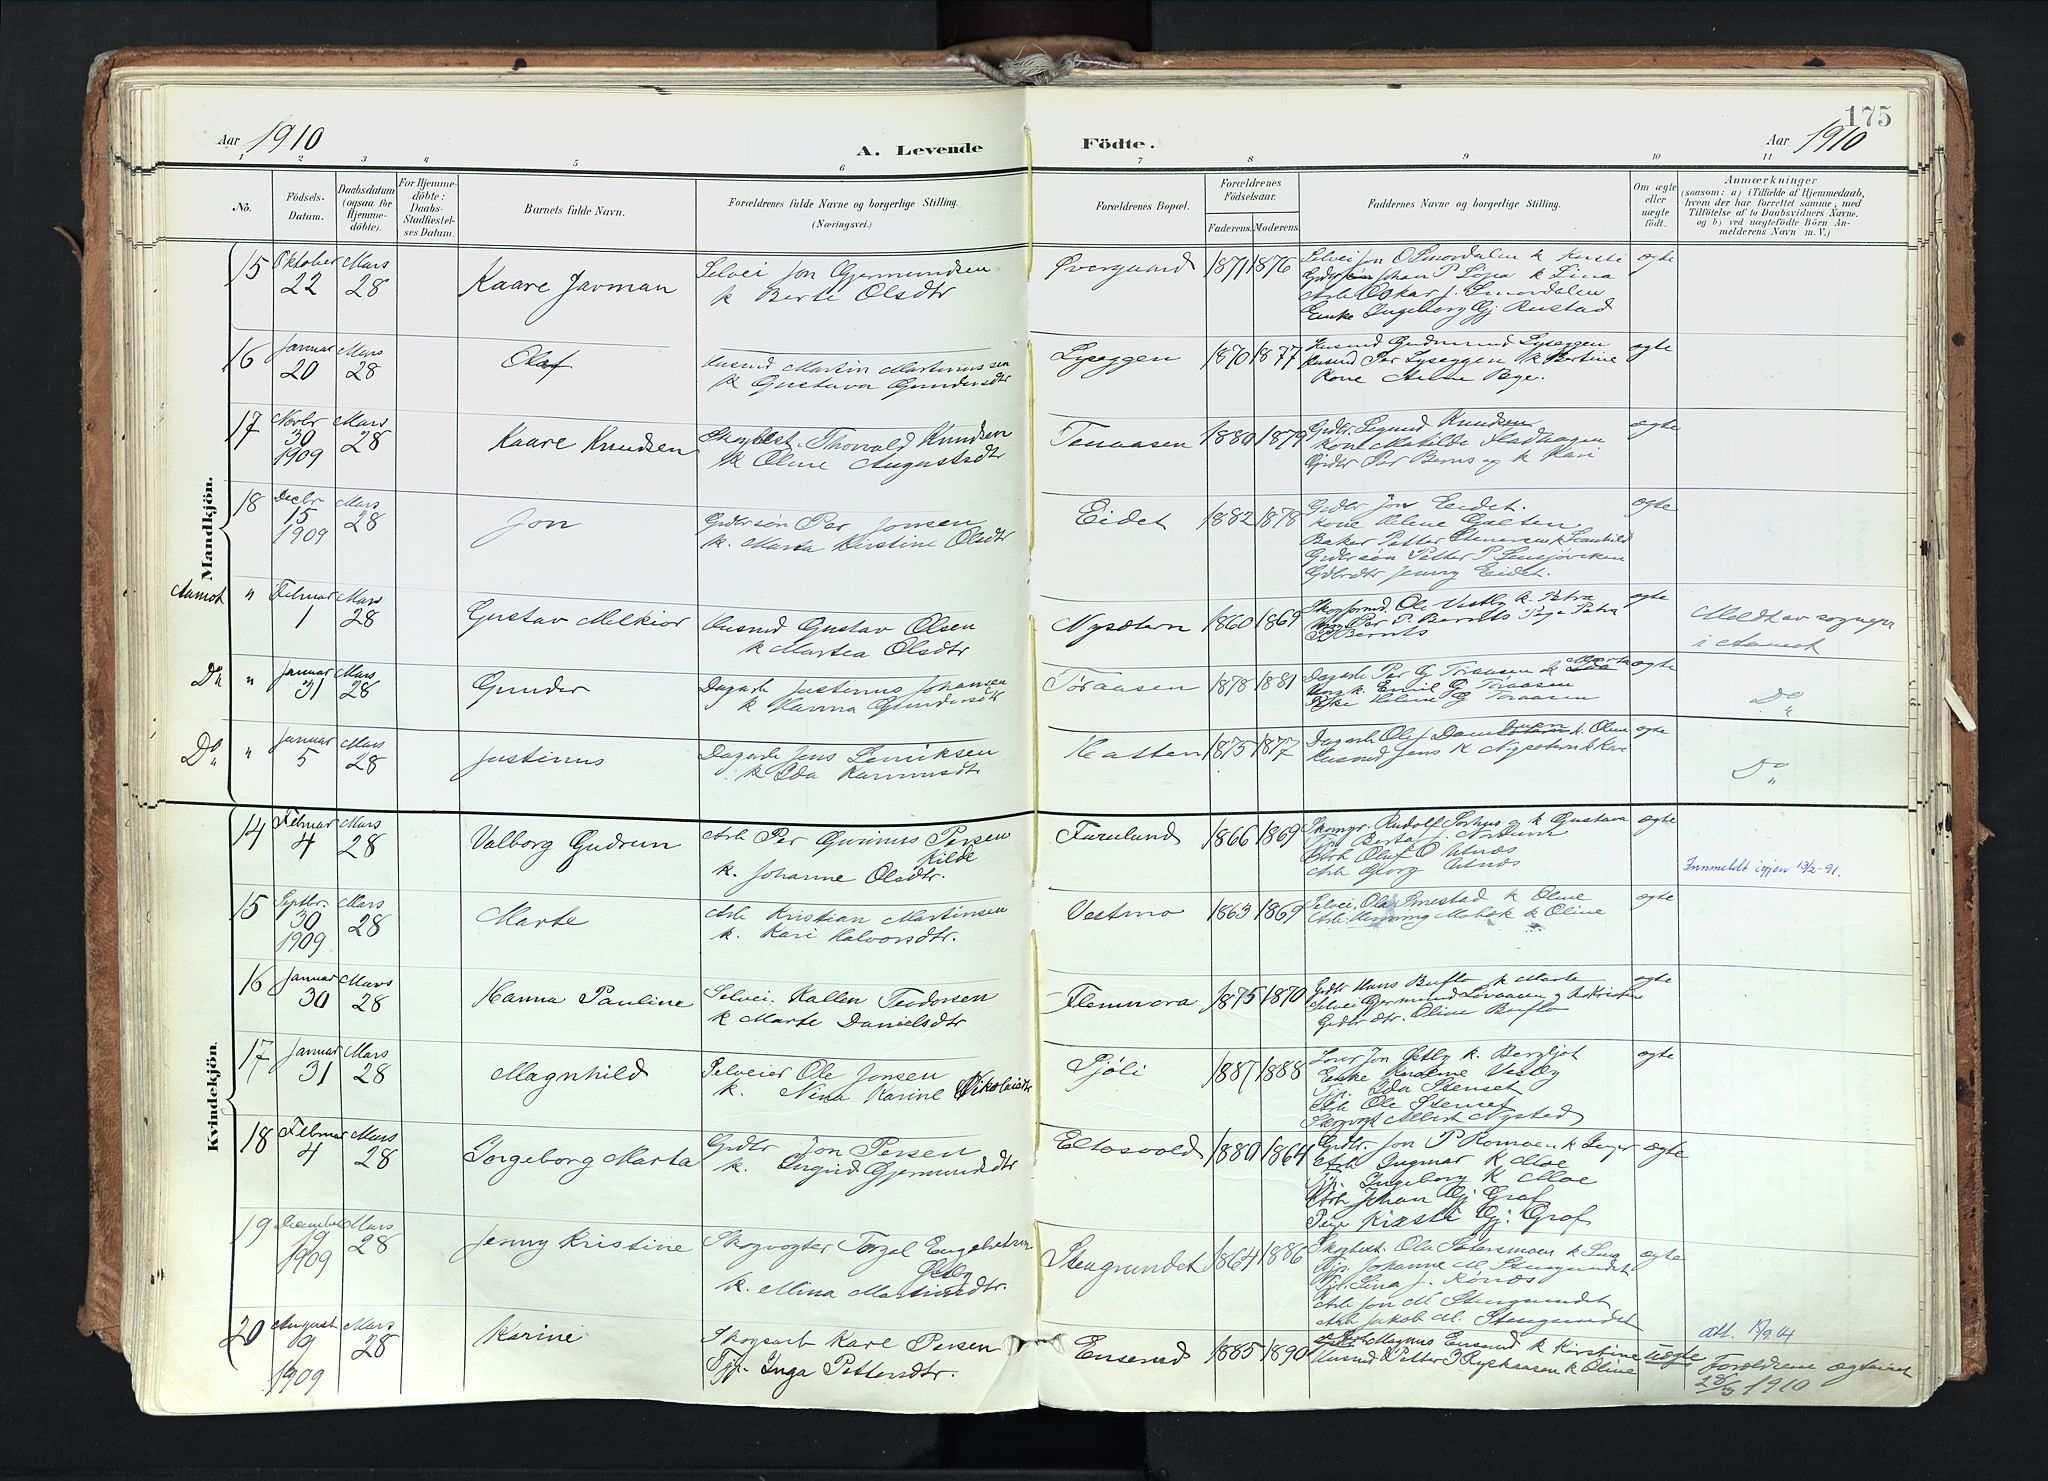 175
Aar 1910
A. Levende
Födte.
Aar 1910
1 2 3 4 5 6 7 8 9 10 11
No.
Födsels-
Datum.
Daabsdatum
(ogsaa for
Hjemme-
döbte).
For Hjemme-
döbte:
Daabs-
Stadfæstel-
ses Datum.
Barnets fulde Navn.
Forældrenes fulde Navne og borgerlige Stilling.
(Næringsvei.)
Forældrenes Bopæl.
Forældrenes
Födselsaar.
Faderens. Moderens.
Faddernes Navne og borgerlige Stilling.
Om ægte
eller
uægte
födt.
Anmærkninger
(saasom: a) i Tilfælde af Hjemmedaab,
hvem der har forrettet samme, med
Tilföielse af to Daabsvidners Navne.
og b) ved uægtefödte Börn An-
melderens Navn m. V.)
Mandkjön.
15 Oktober 22 Mars 28 Kaare Jarman Selvei Jon Gjermundsen
k Berte Olsdtr
Øvergaard 1871 1876 Selvei Jon O Smordalen k Kersti
Johan P Løpa k Lina
Arb Oskar J. Smordalen
Enke Ingeborg Gj Rustad
ægte
16 Januar 20 Mars 28 Olaf Husmd Martin Martinussen
k Gustava Gundersdtr
Lyseggen 1870 1877 Husmd Gudmund Lyseggen
Husmd Per Lyseggen k Bertine
Kone Anne Bye.
ægte
17 Novbr 30 1909 Mars 28 Kaare Knudsen Skogbest. Thorvald Knudsen
k Oline Augustsdtr
Tenaasen 1880 1879 Grdbr. Sigurd Knudsen
Kone Matilde Stadhagen
Grdbr Per Berns og k Kari
ægte
18 Decbr 15 1909 Mars 28 Jon Grdbrsøn Per Jonsen
k. Marta Kirstine Olsdtr
Eidet 1882 1878 Grdbr Jon Eidet.
Kone Helene Galten
Baker Petter Stenersen k
Grdbrsøn Petter P Sensjøviken
Grdbrdtr Jenny Eidet.
ægte
Aamot " Februar 1 Mars 28 Gustav Melkior Husmd Gustav Olsen
k Martea Olsdtr
Nysætern 1860 1869 Ole Vestby k. Petra
Per P Berntts Pige Petra
P Berntts
ægte Meldt av sognepr
i Aamot
Do " Januar 31 Mars 28 Gunder Dagarb Justinus Johansen
k Hanna Gundersdtr
Tøraasen 1878 1881 Dagarb Per G Tøraasen k Marta
Ung k. Emil G Tøraasen
Pike Helene G Tøraasen
ægte Do "
Do " Januar 5 Mars 28 Justinus Dagarb Jens Lenriksen
k Ida Karinusdtr
Hatten 1875 1877 Dagarb Olef k. Oline
Husmd Jens k Nysetern k Kari
ægte Do "
Kvindekjön.
14 Februar 4 Mars 28 Valborg Gudrun Arb Per Gunnius Persen
Kilde
k. Johanne Olsdtr.
Furuland 1866 1869 Rudolf Sorhus og k Gustava
Tj Berta J. Nordum
Arb Oluf O Utnæs
Arb Georg Utnæs
ægte Innmeldt igjen 13/2-91.
15 Septbr. 30 1909 Mars 28 Marte Arb Kristian Martinsen
k. Kari Halvorsdtr.
Vestmo 1863 1869 Selvei. Ola Imestad k Oline
Arb. Henning Mobæk k Oline
ægte
16 Januar 30 Mars 28 Hanna Pauline Selvei. Kallen Teodorsen
k Marte Danielsdtr
Flermora 1875 1870 Grdbr Hans Buflo k Marte
Selvei Gjermund Løvaasen og k Kristin
Grdbrdtr. Oline Buflo
ægte
17 Januar 31 Mars 28 Magnhild Selveier Ole Jonsen
k. Nina Karine Nikolaisdtr
Sjøli 1887 1888 Jon Østby k. Bergljot
Enke Karoline Vestby
Tj. Ida Stenset
Arb Ole Stenset
Skogvogt Albert Nystad
ægte
18 Februar 4 Mars 28 Ingeborg Marta Grdbr Jon Persen
k. Ingrid Gjermundsdtr
Eltosvold 1880 1864 Grdbr. Jon P Romoen k Inger
Arb Ingmar k Moe
Tj. Ingeborg k Moe
Arb Johan Gj Graf
Pige Kirsti Gj. Graf
ægte
19 December 19 1909 Mars 28 Jenny Kristine Skogvogter Torgal Engebretsen
Østby
k. Mina Martinsdtr.
Stengrundet 1864 1886 Skogbest. Ola Sætersmoen k Lina
Tj. Johanne M Stengrundet
Tj. Lina J. Rønæs
Arb Jon M Stengrundet
Arb Jakob M. Stengrundet
ægte
20 August 9 1909 Mars 28 Karine Skogsarb Karl Persen
Tj. Inga Pettersdtr.
Enserud 1885 1890 Magnus Enserud k Kirstine
Husmd Petter Ryskaasen k Oline
uægte
Att. 17/9 14
Forældrene ægteviet
28/3 1910